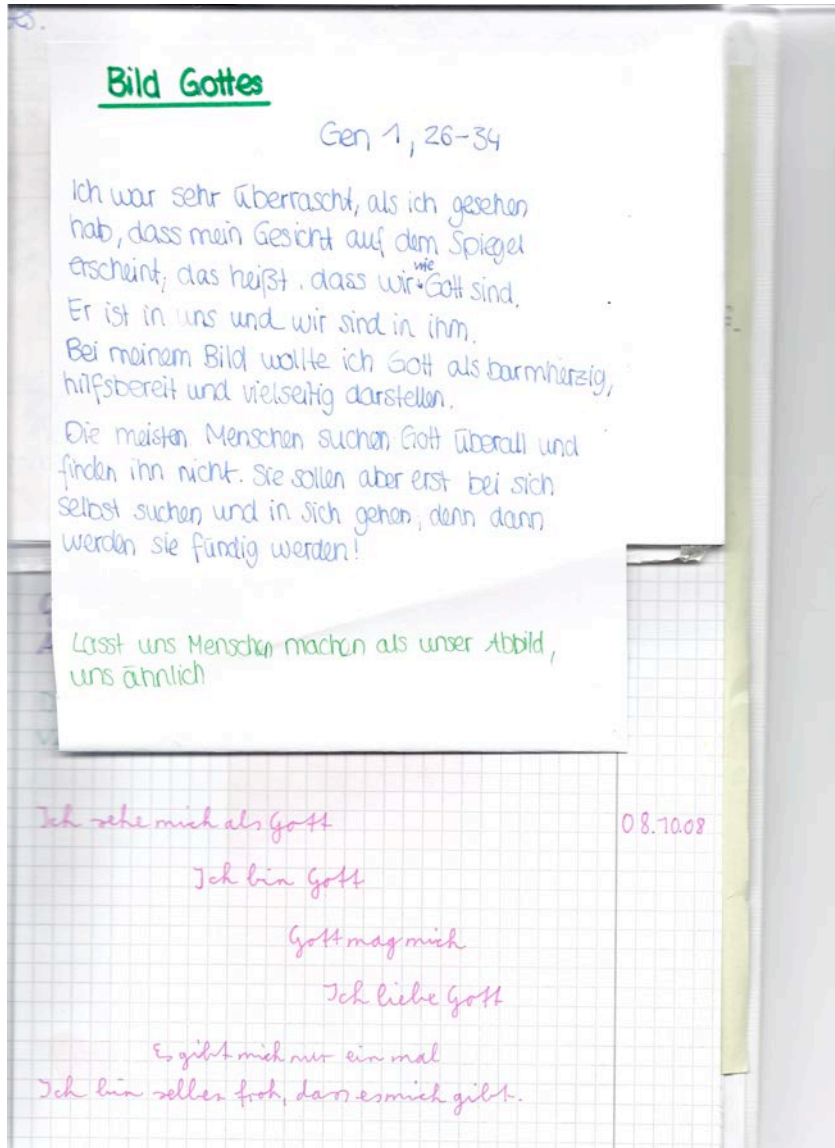 Bild Gottes
Gen 1, 26-34
Ich war sehr überrascht, als ich gesehen
hab, dass mein Gesicht auf dem Spiegel
erscheint, das heißt. dass wir wie Gott sind.
Er ist in uns und wir sind in ihm.
Bei meinem Bild wollte ich Gott als barmherzig,
hilfsbereit und vielseitig darstellen.
Die meisten Menschen suchen Gott überall und
finden ihn nicht. Sie sollen aber erst bei sich
selbst suchen und in sich gehen, denn dann
werden sie fündig werden!
Lasst uns Menschen machen als unser Abbild,
uns ähnlich
Ich sehe mich als Gott 08.10.08
Ich bin Gott
Gott mag mich
Ich liebe Gott
Es gibt mich nur ein mal
Ich bin selber froh, dass es mich gibt.